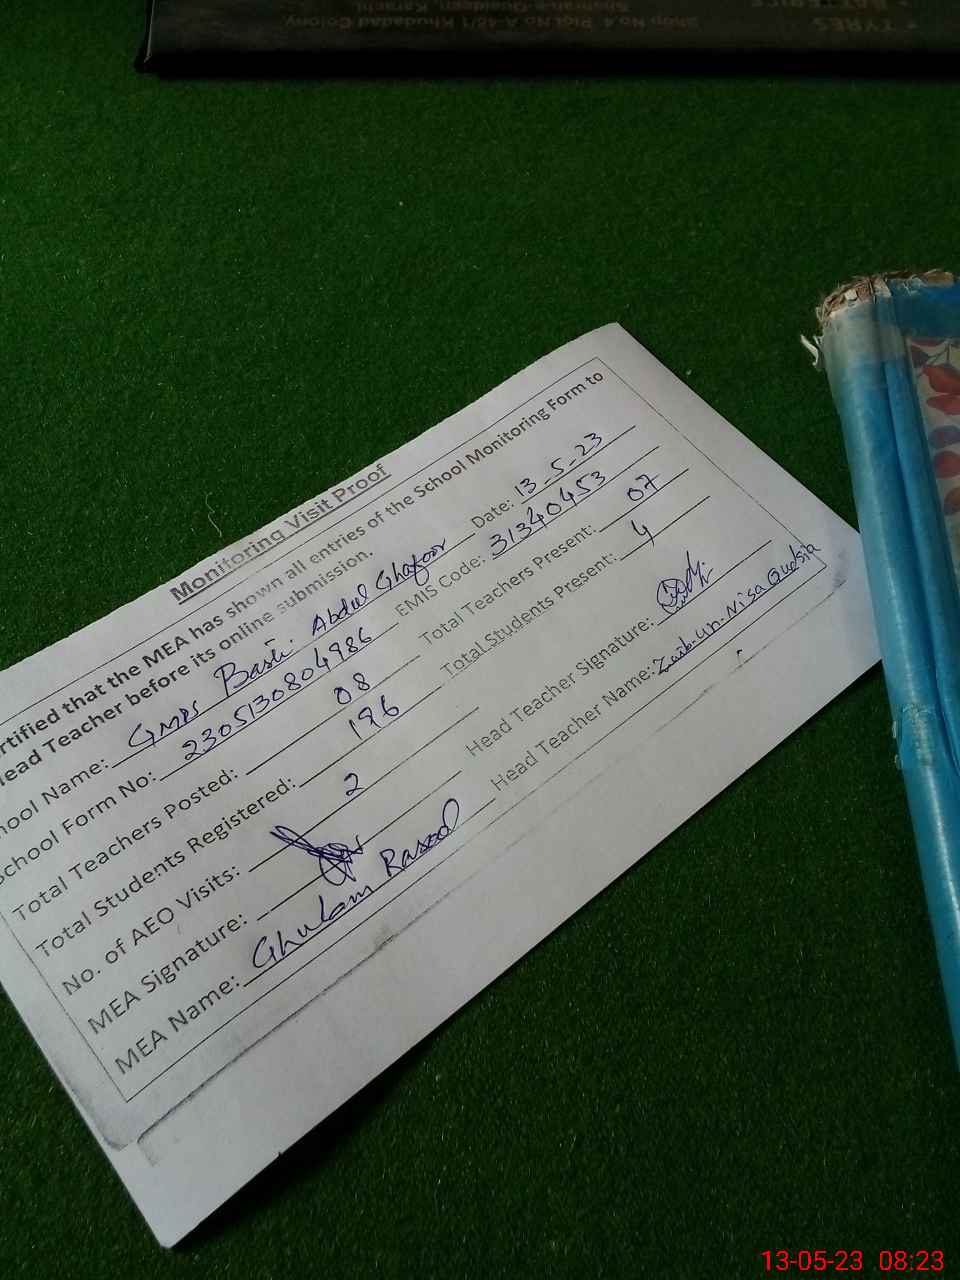 Shop No.4, Plot No A-46/1 Khudadad Colony,
Karachi
• TYRES
Monitoring Visit Proof
rtified that the MEA has shown all entries of the School Monitoring Form to
ead Teacher before its online submission.
hool Name: GMPS Basti Abdul Ghafoor Date: 13-5-23
School Form No: 2305130804986 EMIS Code: 31340453
Total Teachers Posted: 08 Total Teachers Present: 07
Total Students Registered: 196 Total Students Present: 4
No. of AEO Visits: 2
MEA Signature: Head Teacher Signature:
MEA Name: Ghulam Rasool Head Teacher Name: Zaib-un-Nisa Qudsia
13-05-23 08:23